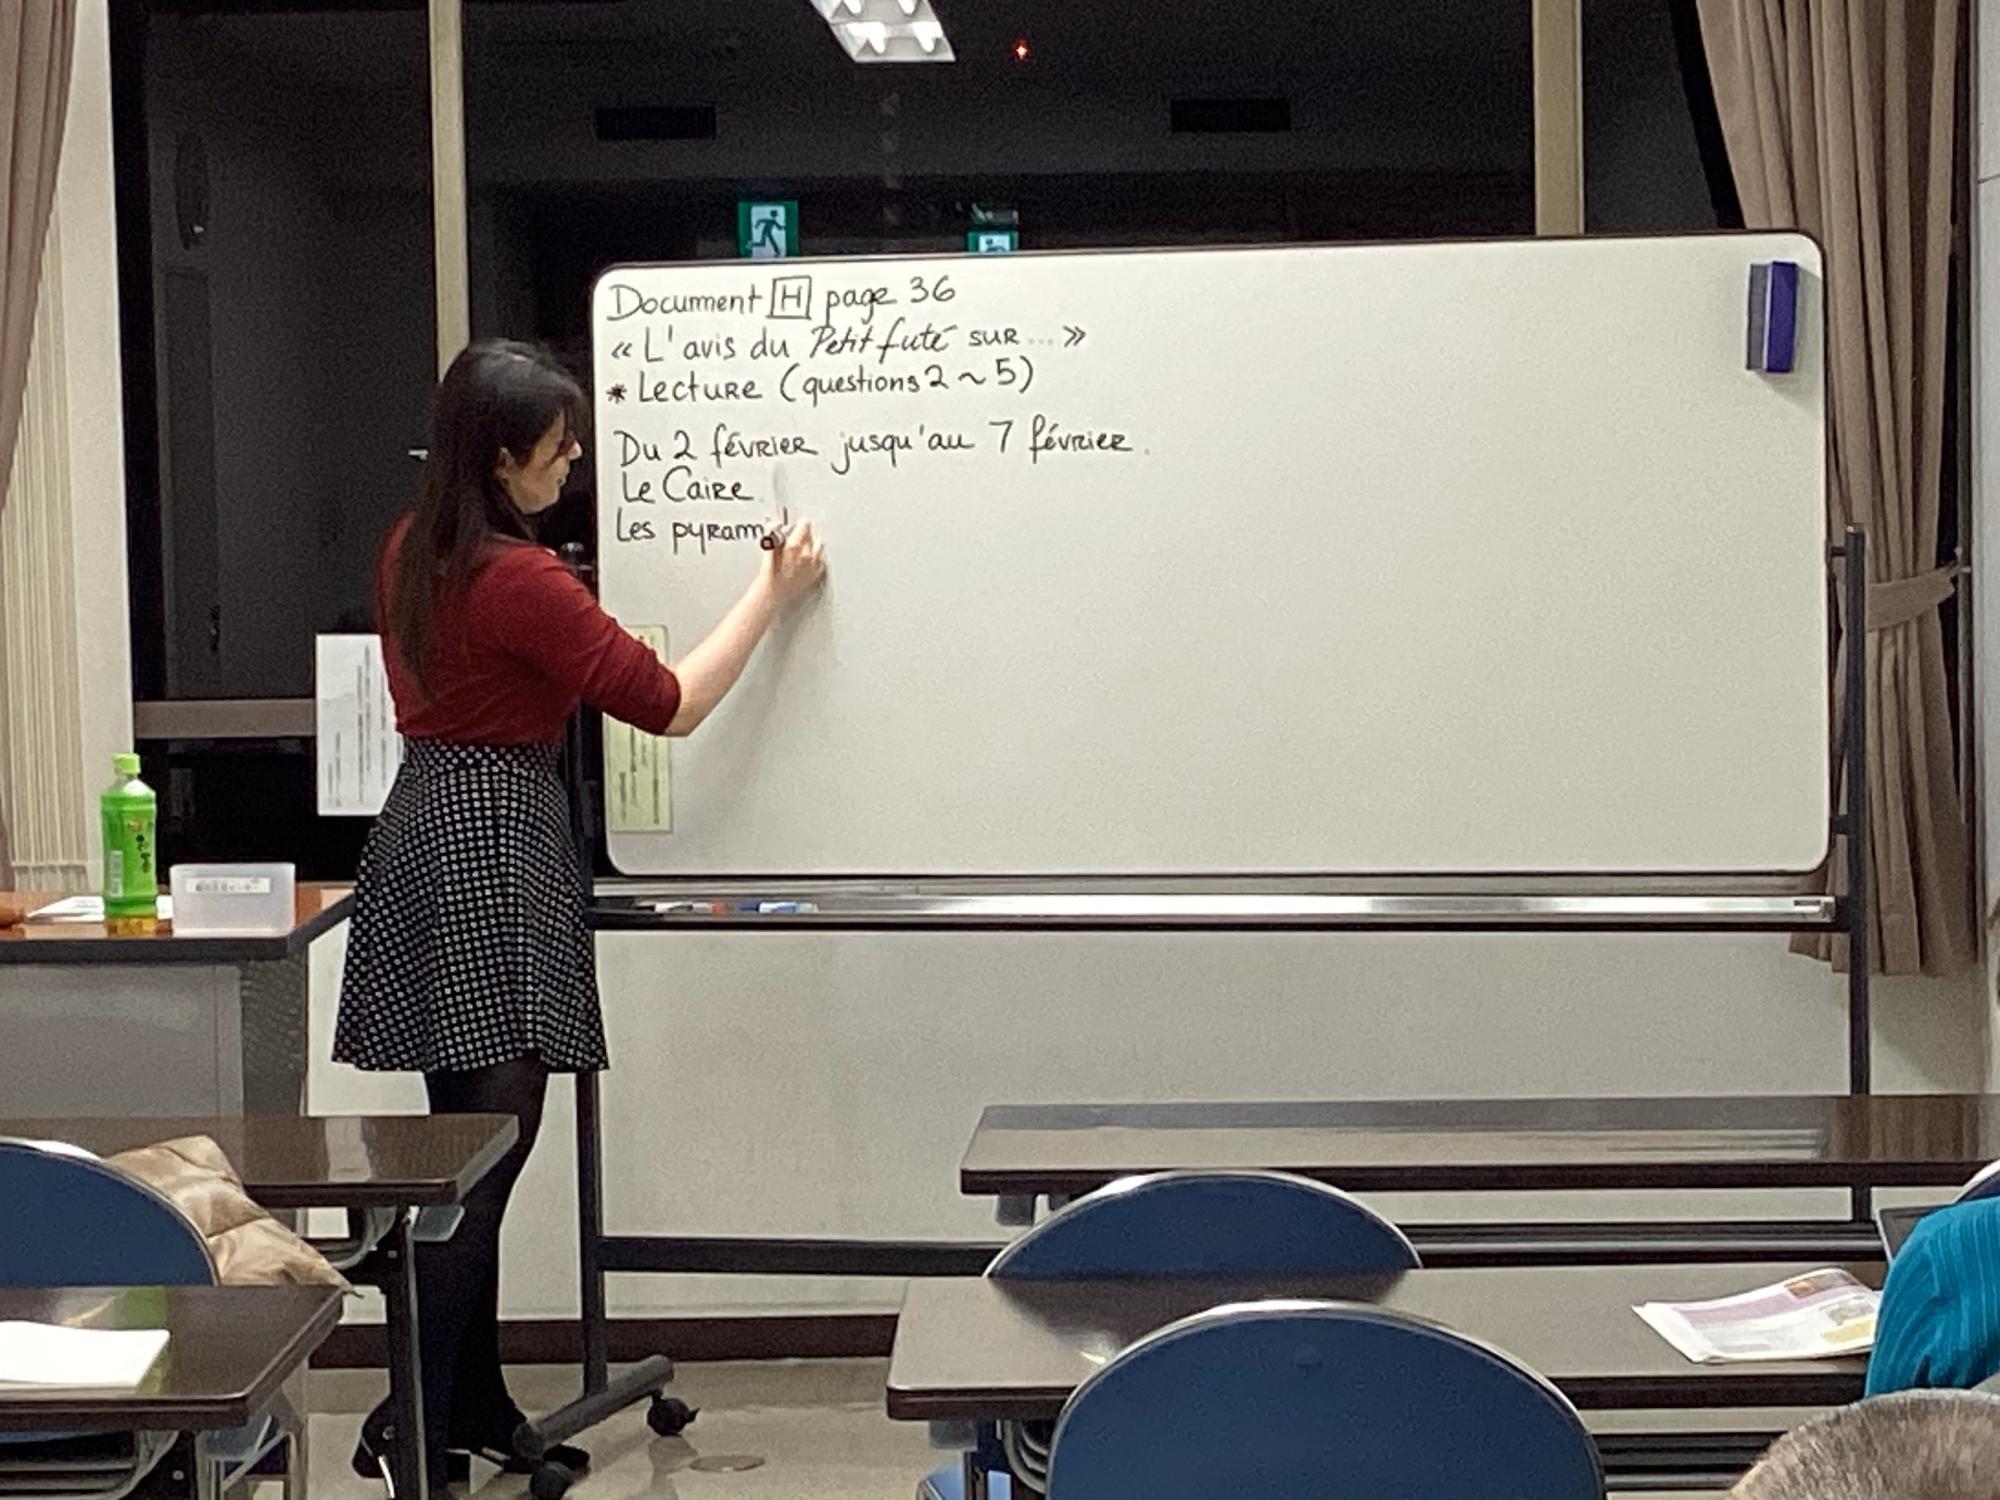 Document H page 36
« L'avis du Petit futé sur ... »
* Lecture (questions 2 ~ 5)
Du 2 février jusqu'au 7 février.
Le Caire.
Les pyramid